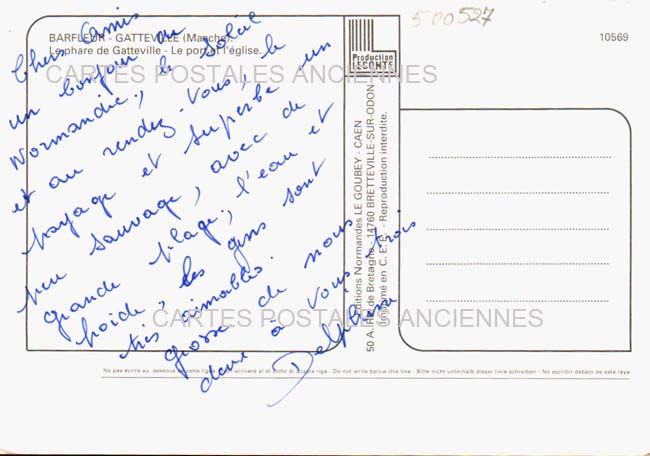 500527
BARFLEUR - GATTEVILLE (Manche).
Le phare de Gatteville - Le port et l'église.
10569
CARTES POSTALES ANCIENNES
Production
LECONTE
Editions Normandes LE GOUBEY - CAEN
50 A. de Bretagne - 14760 BRETTEVILLE-SUR-ODON
Imprimé en C. E. E. - Reproduction interdite.
Chers Amis
un bonjour de
Normandie, le soleil
est au rendez-vous, le
paysage est superbe un
peu sauvage, avec de
grande plage, l'eau est
froide, les gens sont
très aimables.
Grosse de nous
deux à vous trois
Delphine
CARTES POSTALES ANCIENNES
No pas ecrire au dessous de cette ligne - scrivere al di sotto di questa riga - Do not write below this line - Bitte nicht unterhalb dieser linie schreiben - No escribir debajo de esta raya